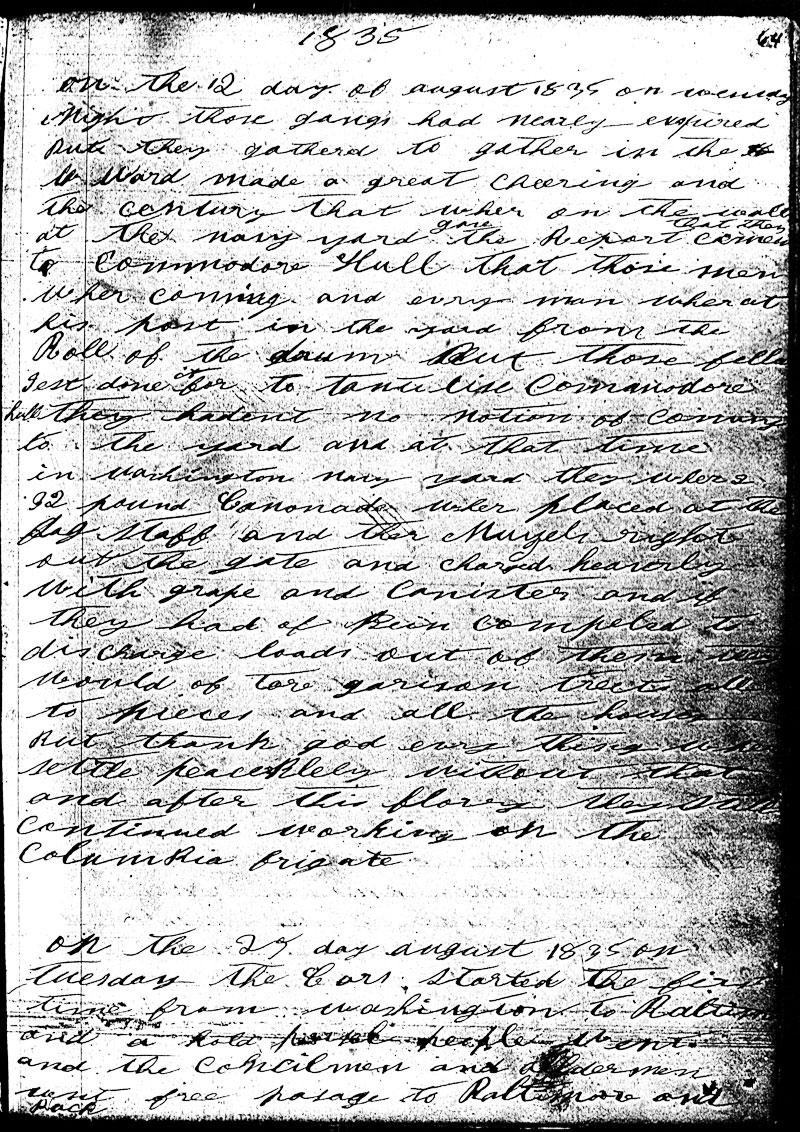 1835
64
on the 12 day of august 1835 on wensday
Night those gangs had nearly expired
But they gathered to gather in the
6 Ward made a great cheering and
the century that wher on the wall
at the navy yard gave the Report that they comen
to Commodore Hull that those men
wher coming and every man wher at
his post in the yard from the
Roll of the drum But those fello
Jest done it for to tantilise Commodore
hull they hadent no notion of coming
to the yard and at that time
in washington navy yard they where
32 pound Canonade wher placed at the
flag staff and ther Muzels right
out the gate and charged heaverly
with grape and Canister and if
they had of Bein compeled to
discharge loads out of them
would of tore garison treets all
to pieces and all the houses
But thank god evry thing wher
settle peaceblely without that
and after this flory they still
continued working on the
Columbia frigate
on the 25 day august 1835 on
Tuesday the Cars started the first
time from washington to Baltimore
and a hold people went
and the concilmen and aldermen
went free pasage to Baltimore and
back